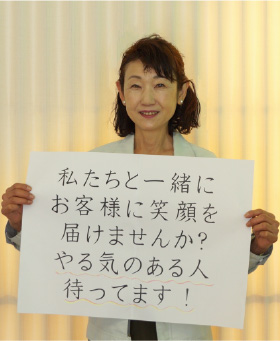 私たちと一緒に
お客様に笑顔を
届けませんか?
やる気のある人
待ってます！